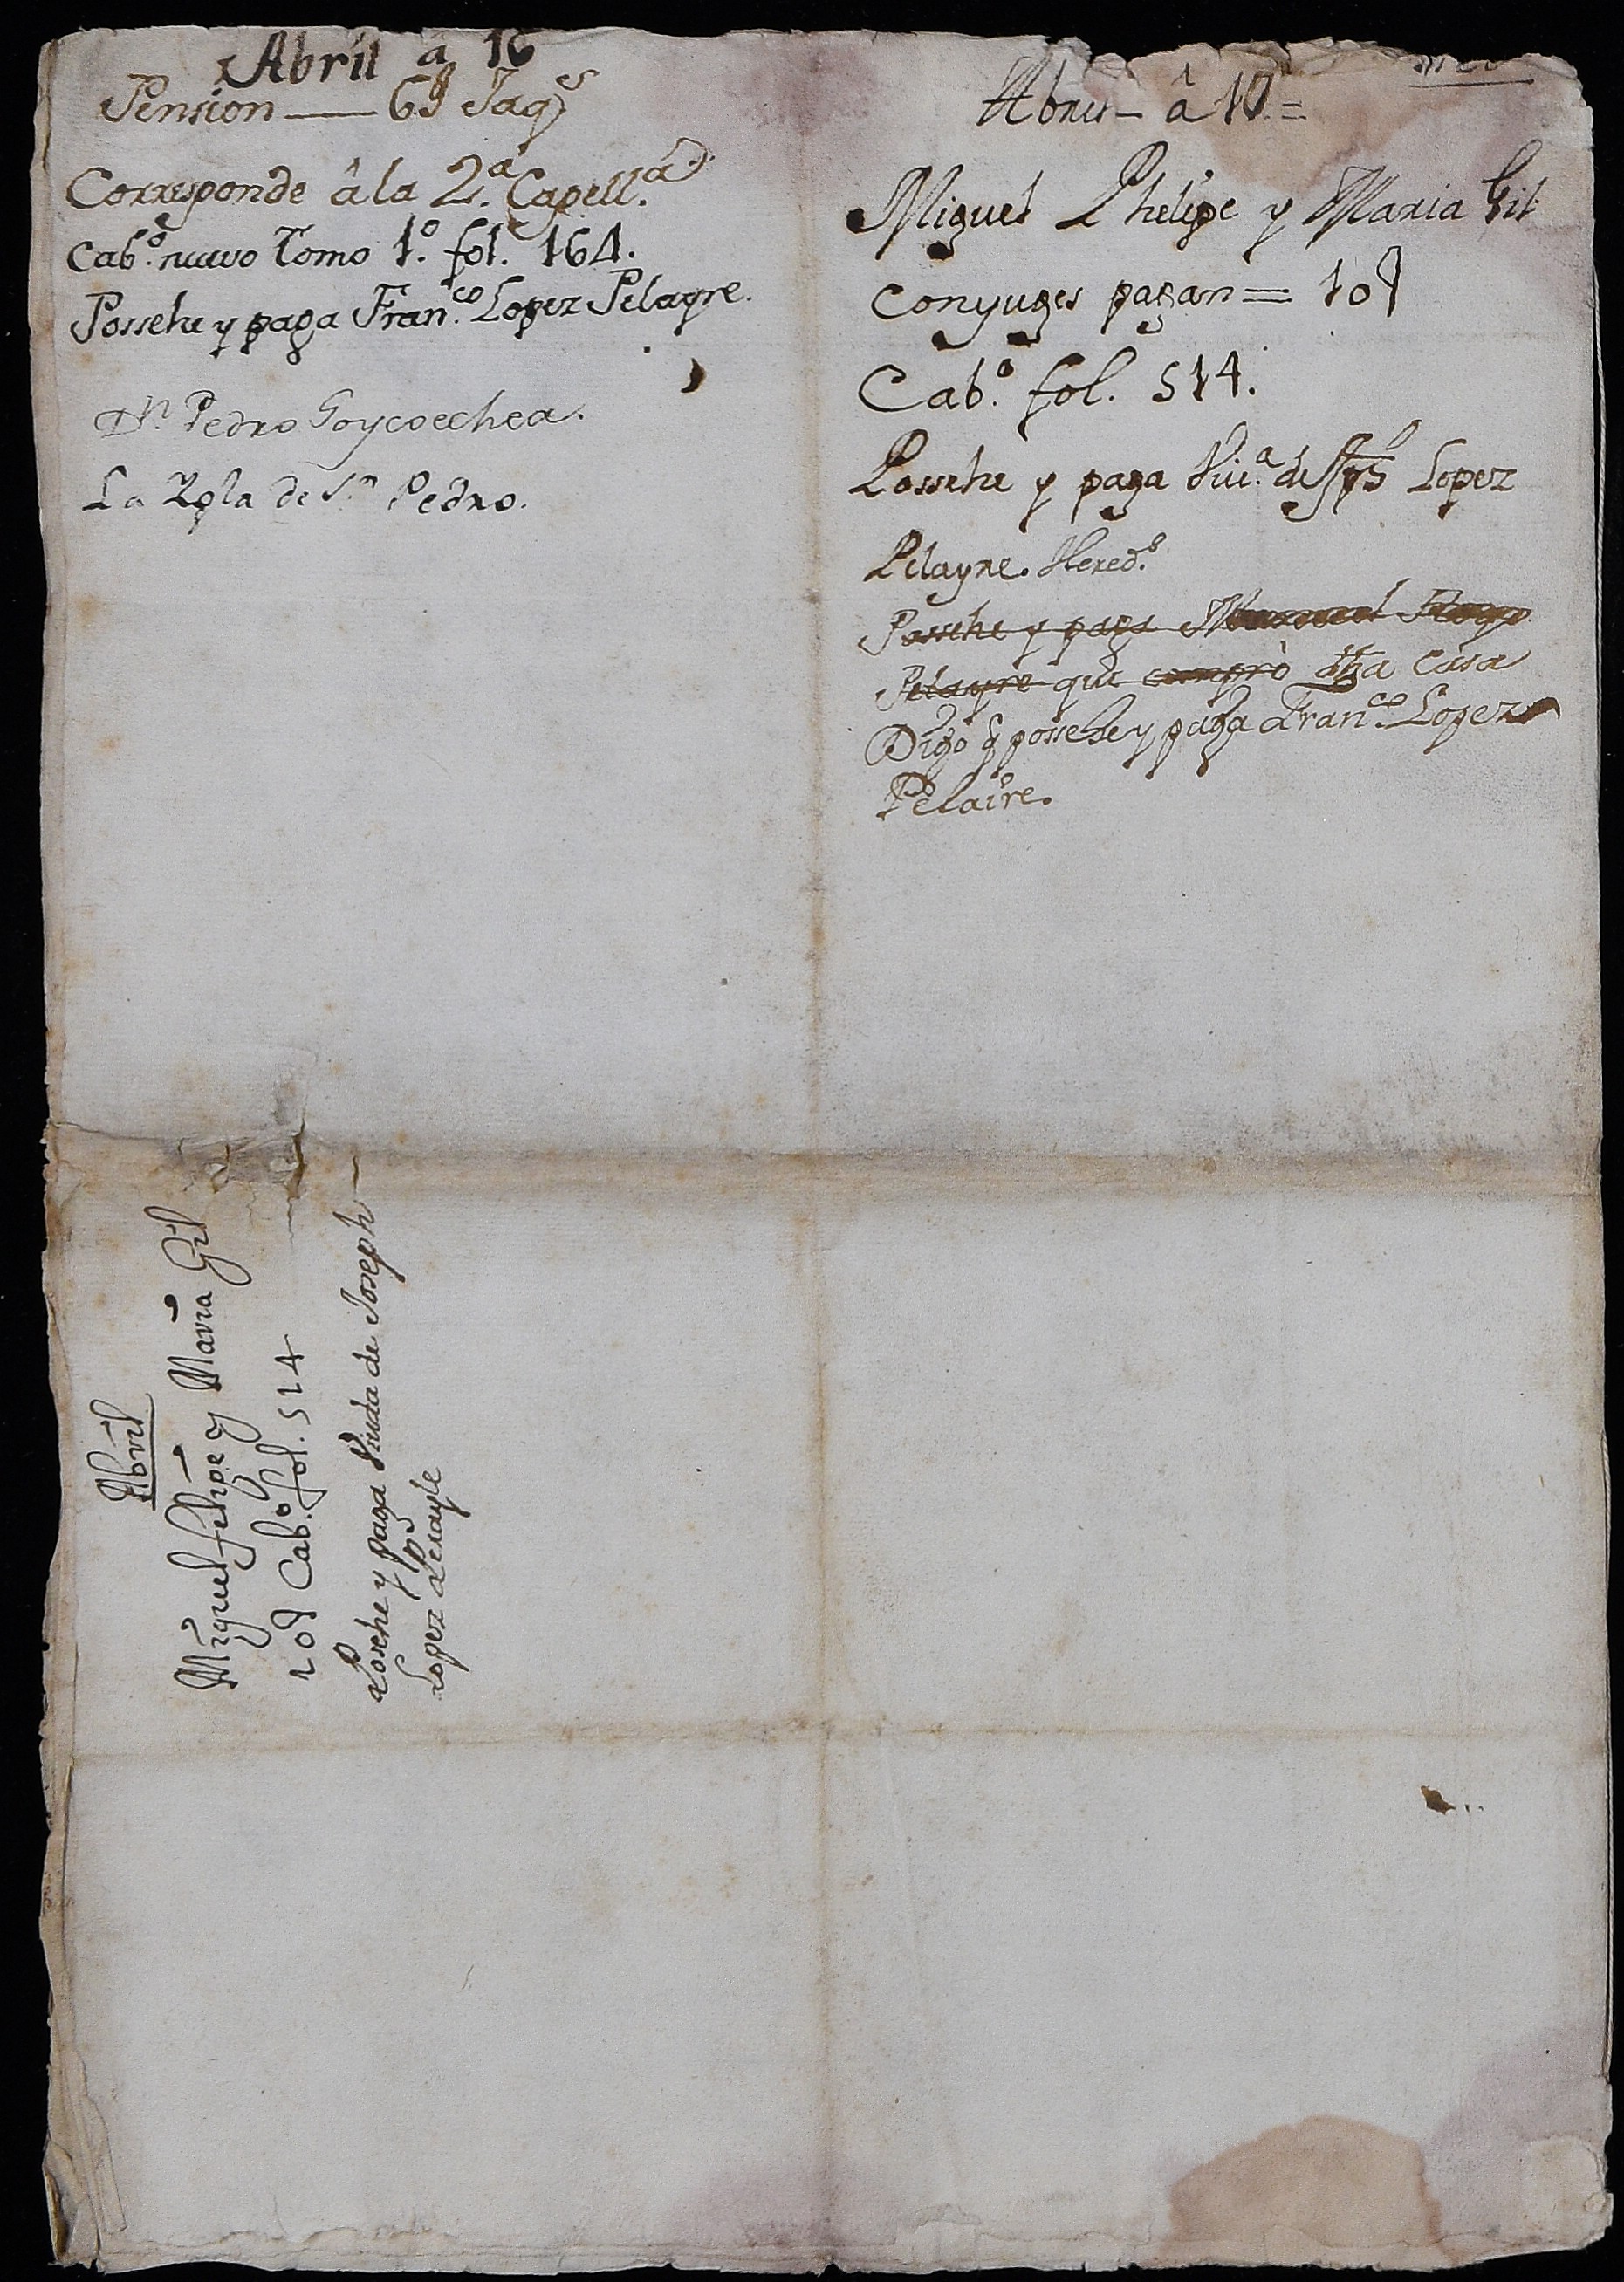 Abril a 16
Pension — 6 Jaq.s
Corresponde â la 2.a Capell.a
Cab.o nuevo Tomo 1.o fol. 164.
Possehe y paga Fran.co Lopez Pelayre.
Dn. Pedro Goycoechea.
La Rgla de Sn Pedro.
Abril â 10 =
Miguel Phelipe y Maria Gil
Conyuges pagan = 10
Cab.o fol. 514.
Possehe y paga Viu.a de Lopez
Pelayre. Hered.s
Possehe y paga Manuel
Pelayre que comprò dha Casa
Digo q possehe y paga Fran.co Lopez
Pelaire.
Abril
Miguel felipe y Maria Gil
10 Cab.o fol. 514
Posehe y paga Viuda de Joseph
Lopez